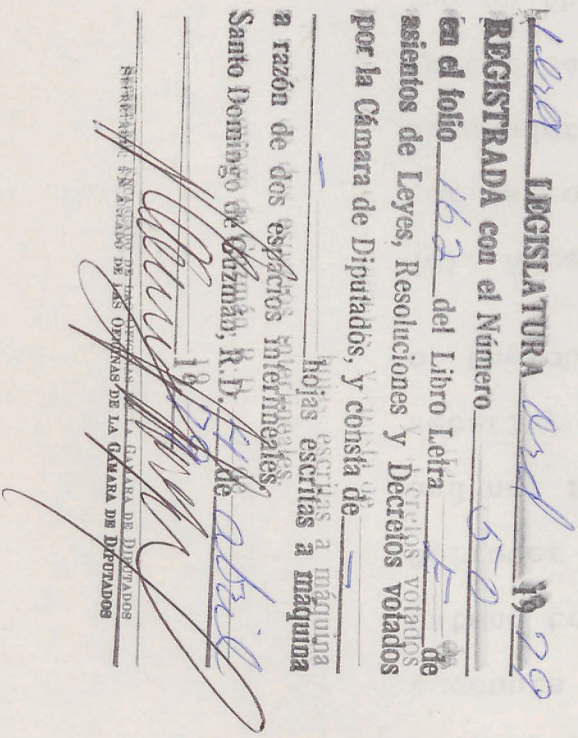 1era LEGISLATURA Ord 1970
REGISTRADA con el Número 50
en el folio 162 del Libro Letra E de
asientos de Leyes, Resoluciones y Decretos votados
por la Cámara de Diputados, y consta de —
— hojas escritas a máquina
a razón de dos espacios interlineales
Santo Domingo de Guzmán, R.D. de abril
19
ENCARGADO DE LAS OFICINAS DE LA CAMARA DE DIPUTADOS